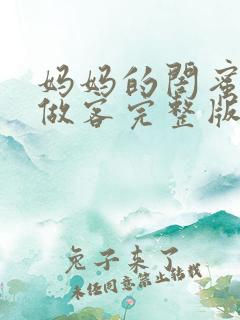 妈妈的闺蜜
做客完整版
兔子来了
未经同意禁止转载